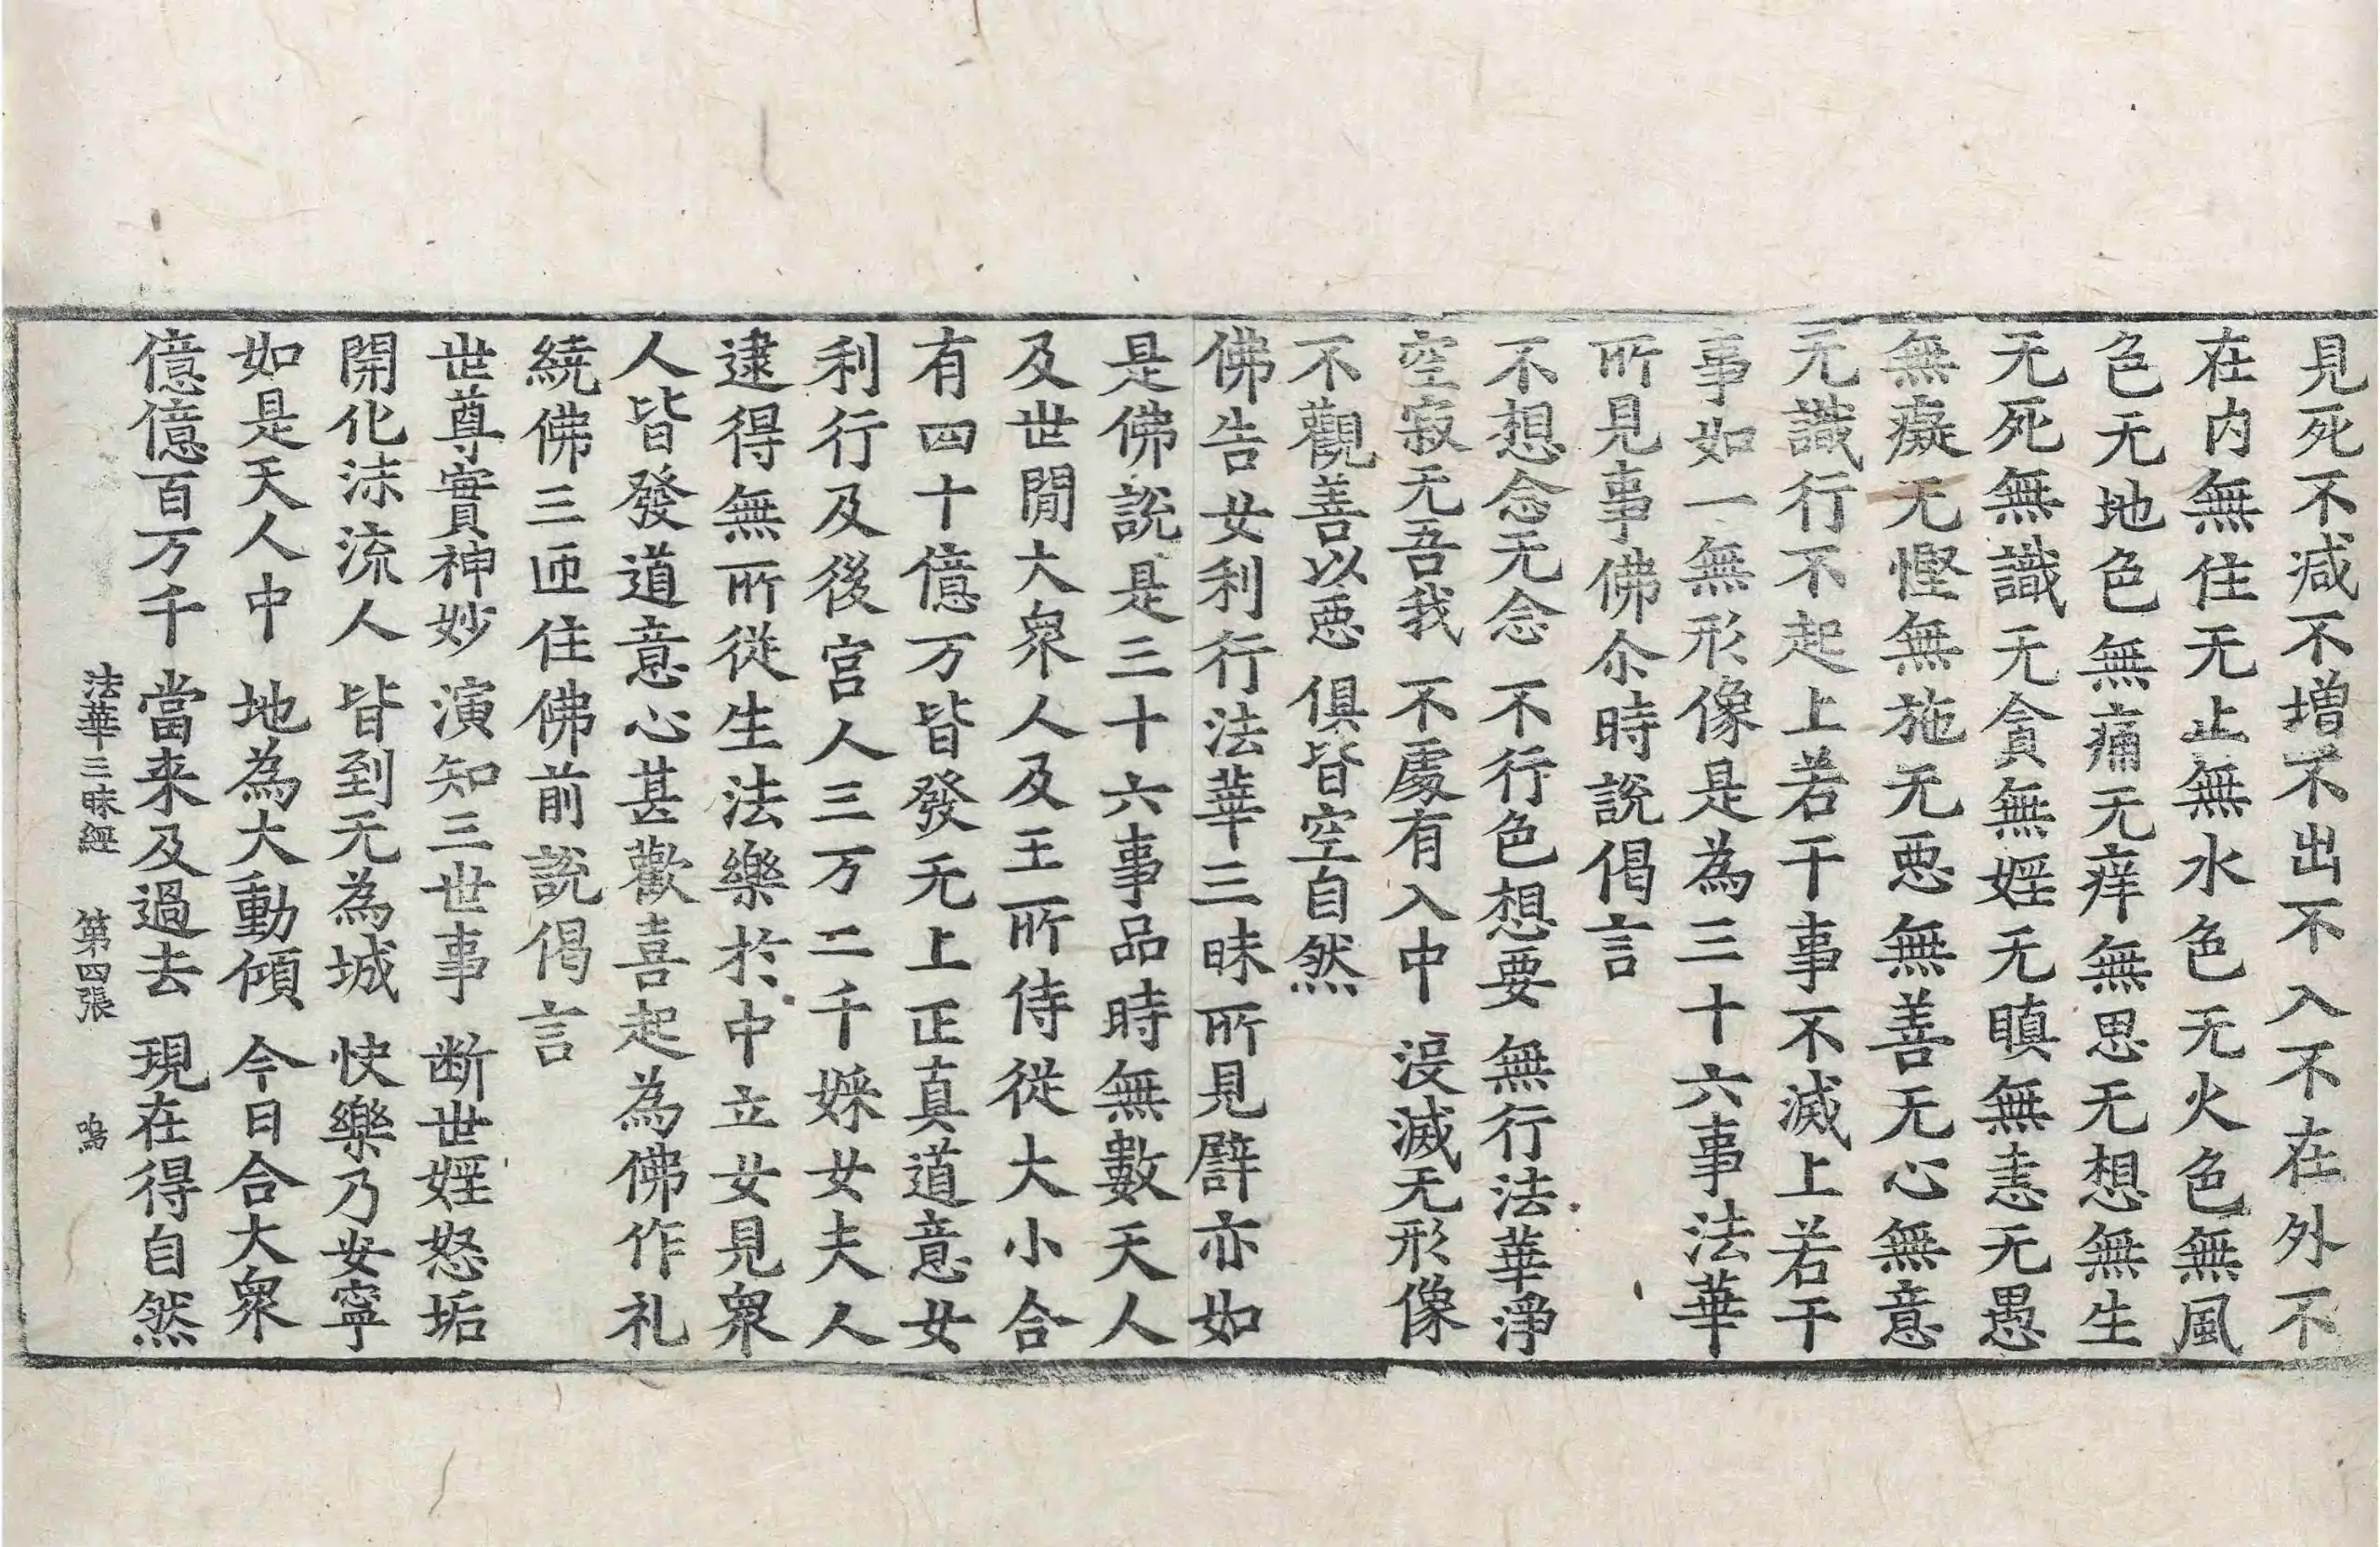 見死不减不增不出不入不在外不
在内無住无止無水色无火色無風
色无地色無痛无痒無思无想無生
无死無識无貪無婬无瞋無恚无愚
無癡无慳無施无惡無善无心無意
无識行不起上若干事不滅上若干
事如一無形像是為三十六事法華
所見事佛尒時說偈言
不想念无念 不行色想要 無行法華淨
空寂无吾我 不處有入中 沒滅无形像
不觀善以惡 俱皆空自然
佛告女利行法華三昧所見譬亦如
是佛說是三十六事品時無數天人
及世閒大衆人及王所侍從大小合
有四十億万皆發无上正真道意女
利行及後宫人三万二千婇女夫人
逮得無所從生法樂於中立女見衆
人皆發道意心甚歡喜起為佛作礼
繞佛三匝住佛前說偈言
世尊實神妙 演知三世事 断世婬怒垢
開化沫流人 皆到无為城 快樂乃安寧
如是天人中 地為大動傾 今日合大衆
億億百万千 當来及過去 現在得自然
法華三昧經 第四張 鳴